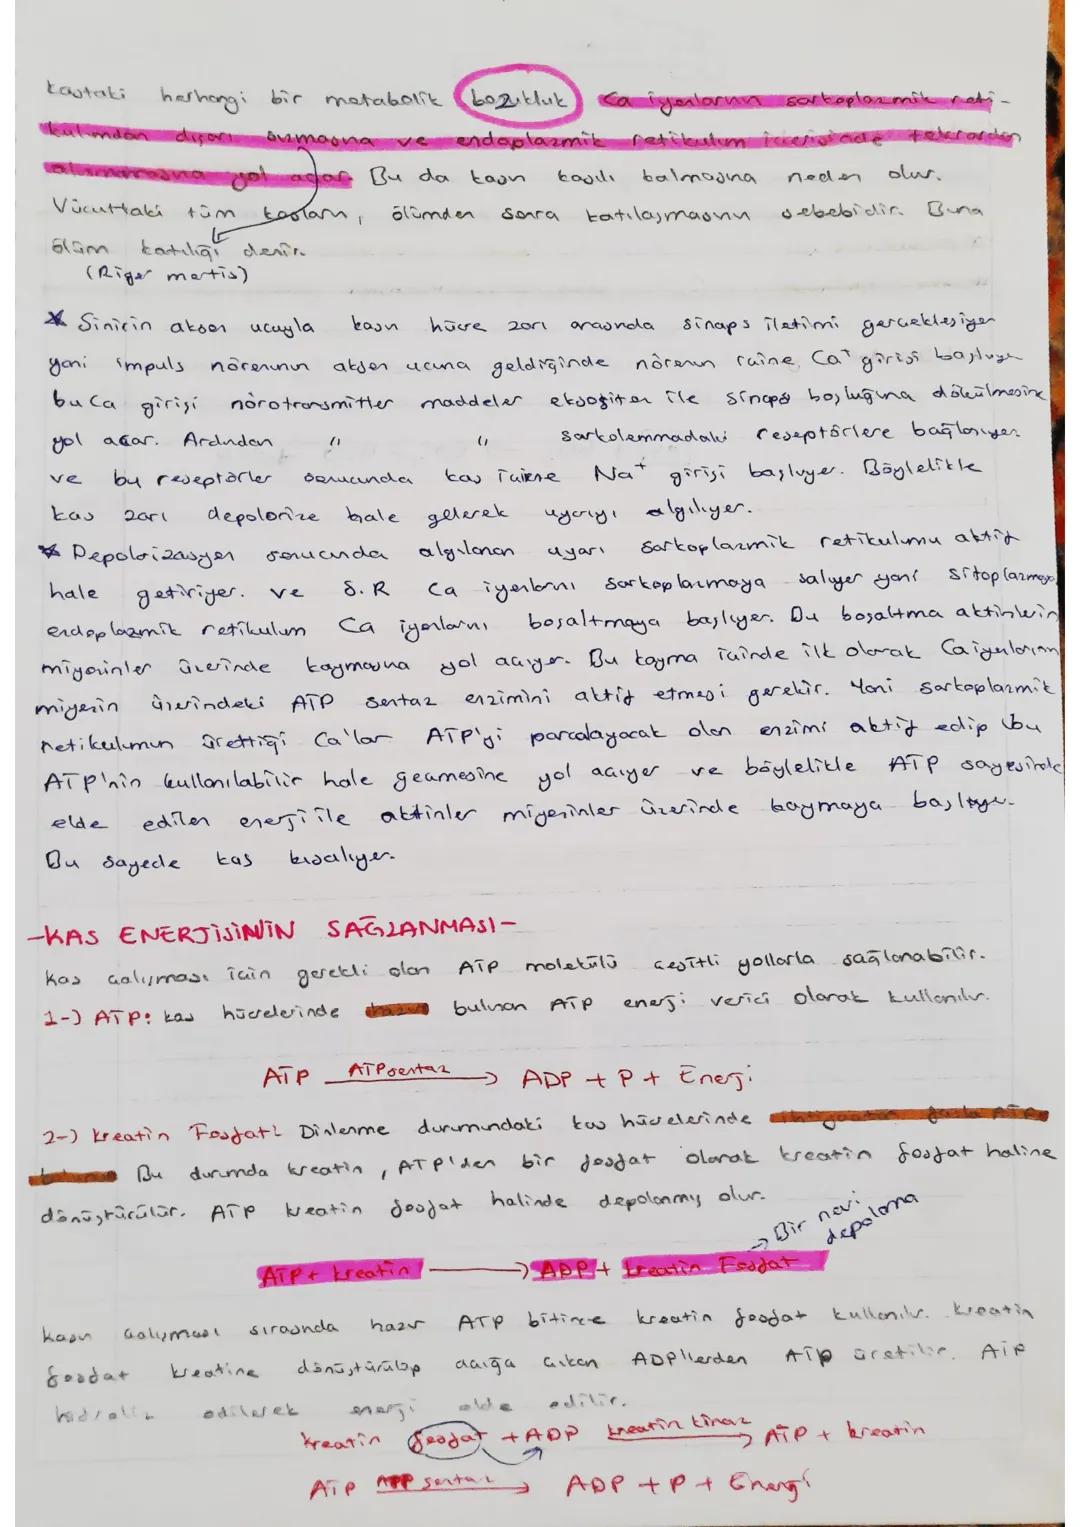 kastaki herhangi bir metabolik bozukluk Ca iyonlarının sarkoplazmik reti-
kulumdan dışarı sızmasına ve endoplazmik retikulum içerisinde tekrardan
alınmasına yol açar. Bu da kasın kasılı kalmasına neden olur.
Vücuttaki tüm kasların, ölümden sonra katılaşmasının sebebidir. Buna
ölüm katılığı denir.
(Riger mortis)
* Sinirin akson ucuyla kasın hücre zarı arasında sinaps iletimi gerçekleşiyor
yani impuls nöronunun akson ucuna geldiğinde nöronun içine Ca+ girişi başlıyor
bu Ca girişi nörotransmitter maddeler ekzositoz ile sinaps boşluğuna dökülmesine
yol açar. Ardından " " sarkolemmadaki reseptörlere bağlanıyor
ve bu reseptörler sonucunda kas içine Na+ girişi başlıyor. Böylelikle
kas zarı depolarize hale gelerek uyarıyı algılıyor.
* Depolarizasyon sonucunda algılanan uyarı sarkoplazmik retikulumu aktif
hale getiriyor. ve S.R Ca iyonlarını sarkoplazmaya salıyor yani sitoplazmaya
endoplazmik retikulum Ca iyonlarını boşaltmaya başlıyor. Bu boşaltma aktinlerin
miyozinler üzerinde kaymasına yol açıyor. Bu kayma içinde ilk olarak Ca iyonlarının
miyozin üzerindeki ATP sentaz enzimini aktif etmesi gerekir. Yani sarkoplazmik
retikulumun ürettiği Ca'lar ATP'yi parçalayacak olan enzimi aktif edip bu
ATP'nin kullanılabilir hale geçmesine yol açıyor ve böylelikle ATP sayesinde
elde edilen enerji ile aktinler miyozinler üzerinde kaymaya başlıyor.
Bu sayede kas kısalıyor.
-KAS ENERJİSİNİN SAĞLANMASI-
Kas çalışması için gerekli olan ATP molekülü çeşitli yollarla sağlanabilir.
1-) ATP: kas hücrelerinde hazır bulunan ATP enerji verici olarak kullanılır.
ATP ATPsentaz → ADP + P + Enerji
2-) Kreatin Fosfat: Dinlenme durumundaki kas hücrelerinde
Bu durumda kreatin, ATP'den bir fosfat olarak kreatin fosfat haline
dönüştürülür. ATP kreatin fosfat halinde depolanmış olur.
→ Bir nevi
depolama
ATP + kreatin → ADP + kreatin Fosfat
kasın çalışması sırasında hazır ATP bitince kreatin fosfat kullanılır. Kreatin
fosfat kreatine dönüştürülüp açığa çıkan ADP'lerden ATP üretilir. ATP
hidroliz edilerek enerji elde edilir.
kreatin fosfat + ADP kreatin kinaz → ATP + kreatin
ATP ATP sentaz → ADP + P + Enerji